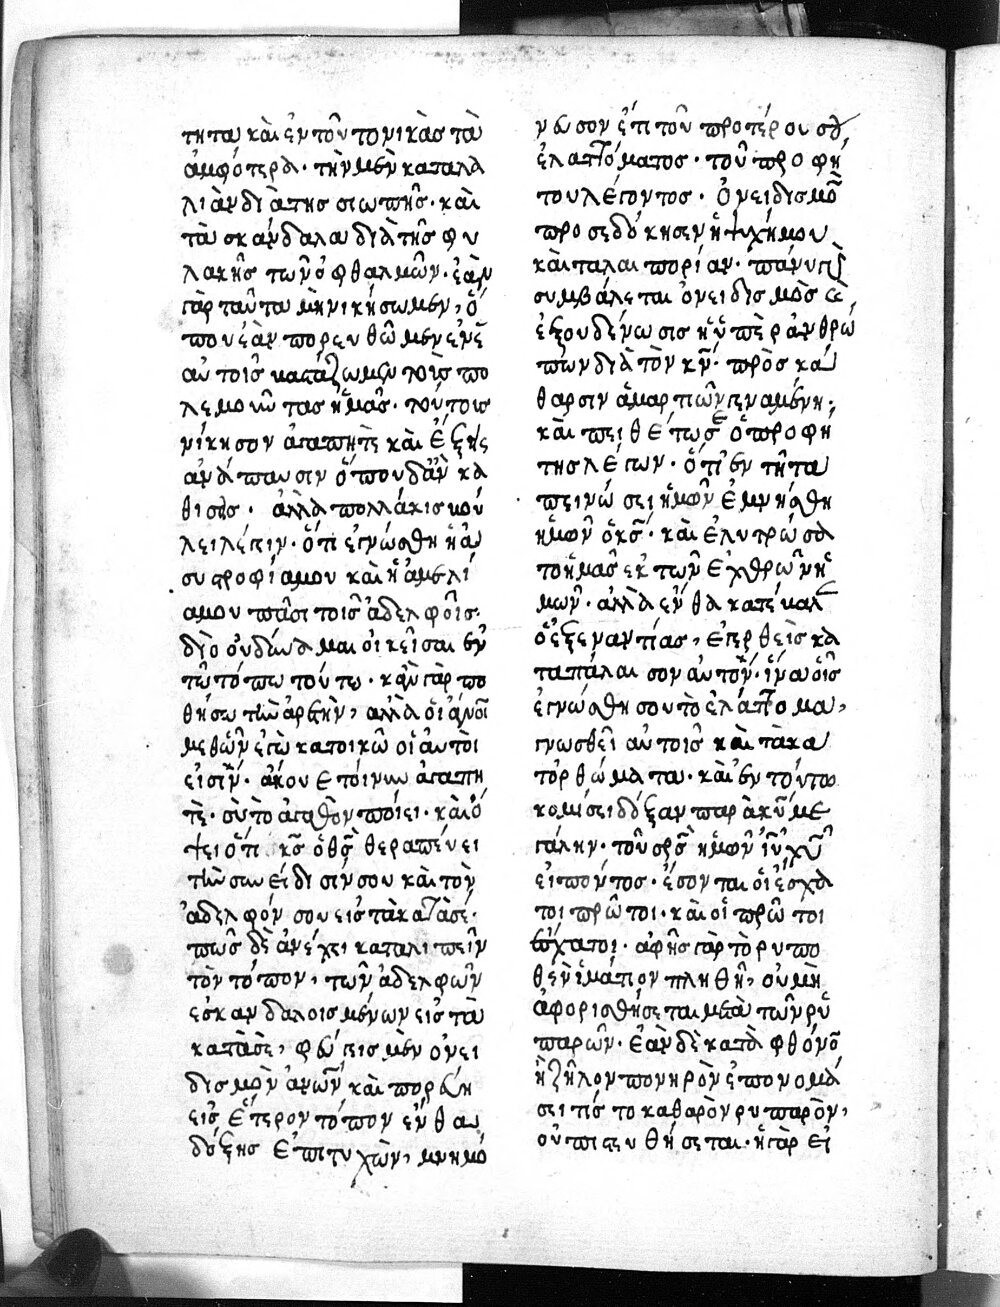 τητα καὶ ἐν τούτον νικᾶς τὰ
ἀμφότερα· τὴν μὲν καταλα
λιὰν διὰ τῆς σιωπῆς· καὶ
τὰ σκάνδαλα διὰ τῆς φυ
λακῆς τῶν ὀφθαλμῶν· ἐὰν
γὰρ ταῦτα μὴ νικήσωμεν, ὅ
που ἐὰν πορευθῶμεν ἐν ἑ
αυτοῖς τοὺς πο
λεμοῦντας ἡμᾶς· τούτοις
νίκησον ἀγαπητὲ καὶ ἕξῃς
ἀνάπαυσιν ὅπου δἂν κα
θίσῃς· ἀλλὰ πολλάκις μοι
λέγειν· ὅτι ἐγνώσθη ἡ ἀ
συστροφία μου καὶ ἡ ἀμελί
α μου πᾶσι τοῖς ἀδελφοῖς·
διὸ οὐ δύναμαι οἰκεῖσαι ἐν
τῷ τόπω τούτω· κἂν γὰρ πο
θήσω τὴν ἀρετὴν, ἀλλὰ οἱ ἀνοι
μεθ' ὧν ἐγὼ κατοικῶ οἱ αὐτοί
εἰσιν· ἄκουε τοίνυν ἀγαπη
τὲ· σὺ τὸ ἀγαθὸν ποίει· καὶ ὄ
ψει ὅτι κς ὁ θς θεραπεύει
τὴν συνείδισίν σου καὶ τὸν
ἀδελφόν σου εἰς τὰ κατὰ σέ·
πῶς δὲ ἀνέχει καταλιπεῖν
τὸν τόπον, τῶν ἀδελφῶν
ἐσκανδαλοισμένων εἰς τὰ
κατὰ σὲ, φεύγεις μὲν ὀνει
δισμὸν ἀνων καὶ πορεύη
εἰς ἕτερον τόπον ἔνθα
δόξης ἐπιτυχὼν, μνημό
νευσον ἐπὶ τοῦ προτέρου σου
ἐλαττόματος· τοῦ προφή
του λέγοντος· ὀνειδισμὸν
προσεδόκησεν ἡ ψυχή μου
καὶ ταλαιπορίαν· πάνυ γὰρ
συμβάλεται ὀνειδισμὸς καὶ
ἐξουδένωσις ἡ ὑπὲρ ἀνθρώ
πων διὰ τὸν κν· πρὸς κά
θαρσιν ἁμαρτιῶν γεναμένη·
καὶ πειθέτω σε ὁ προφή
της λέγων· ὅτι ἐν τῆ τα
πεινώσει ἡμῶν ἐμνήσθη
ἡμῶν ὁ κς· καὶ ἐλυτρώσα
το ἡμᾶς ἐκ τῶν ἐχθρῶν ἡ
μῶν· ἀλλὰ ἔνθα κατέβαλε
ὁ ἐξ ἐναντίας, ἐγερθεὶς κα
ταπάλαισον αὐτὸν· ἵνα οἷς
ἐγνώσθη σου τὸ ἐλάττομα,
γνωσθεῖ αὐτοῖς καὶ τὰ κα
τορθώματα· καὶ ἐν τούτω
κομίσει δόξαν παρὰ κυ με
γάλην· τοῦ σρς ἡμῶν ιυ χυ
εἰπόντος· ἔσονται οἱ ἔσχα
τοι πρῶτοι· καὶ οἱ πρῶτοι
ἔσχατοι· ἀφῆς γὰρ τὸ ρυπο
θὲν ἱμάτιον πληθῆ, οὐ μὴ
ἀφορισθήσεται μετὰ τῶν ρυ
παρῶν· ἐὰν δὲ κατὰ φθόνον
ἢ ζῆλον πονηρὸν ἐπονομά
σει τίς τὸ καθαρὸν ρυπαρὸν,
οὐ πιστευθήσεται· ἡ γὰρ εἰ